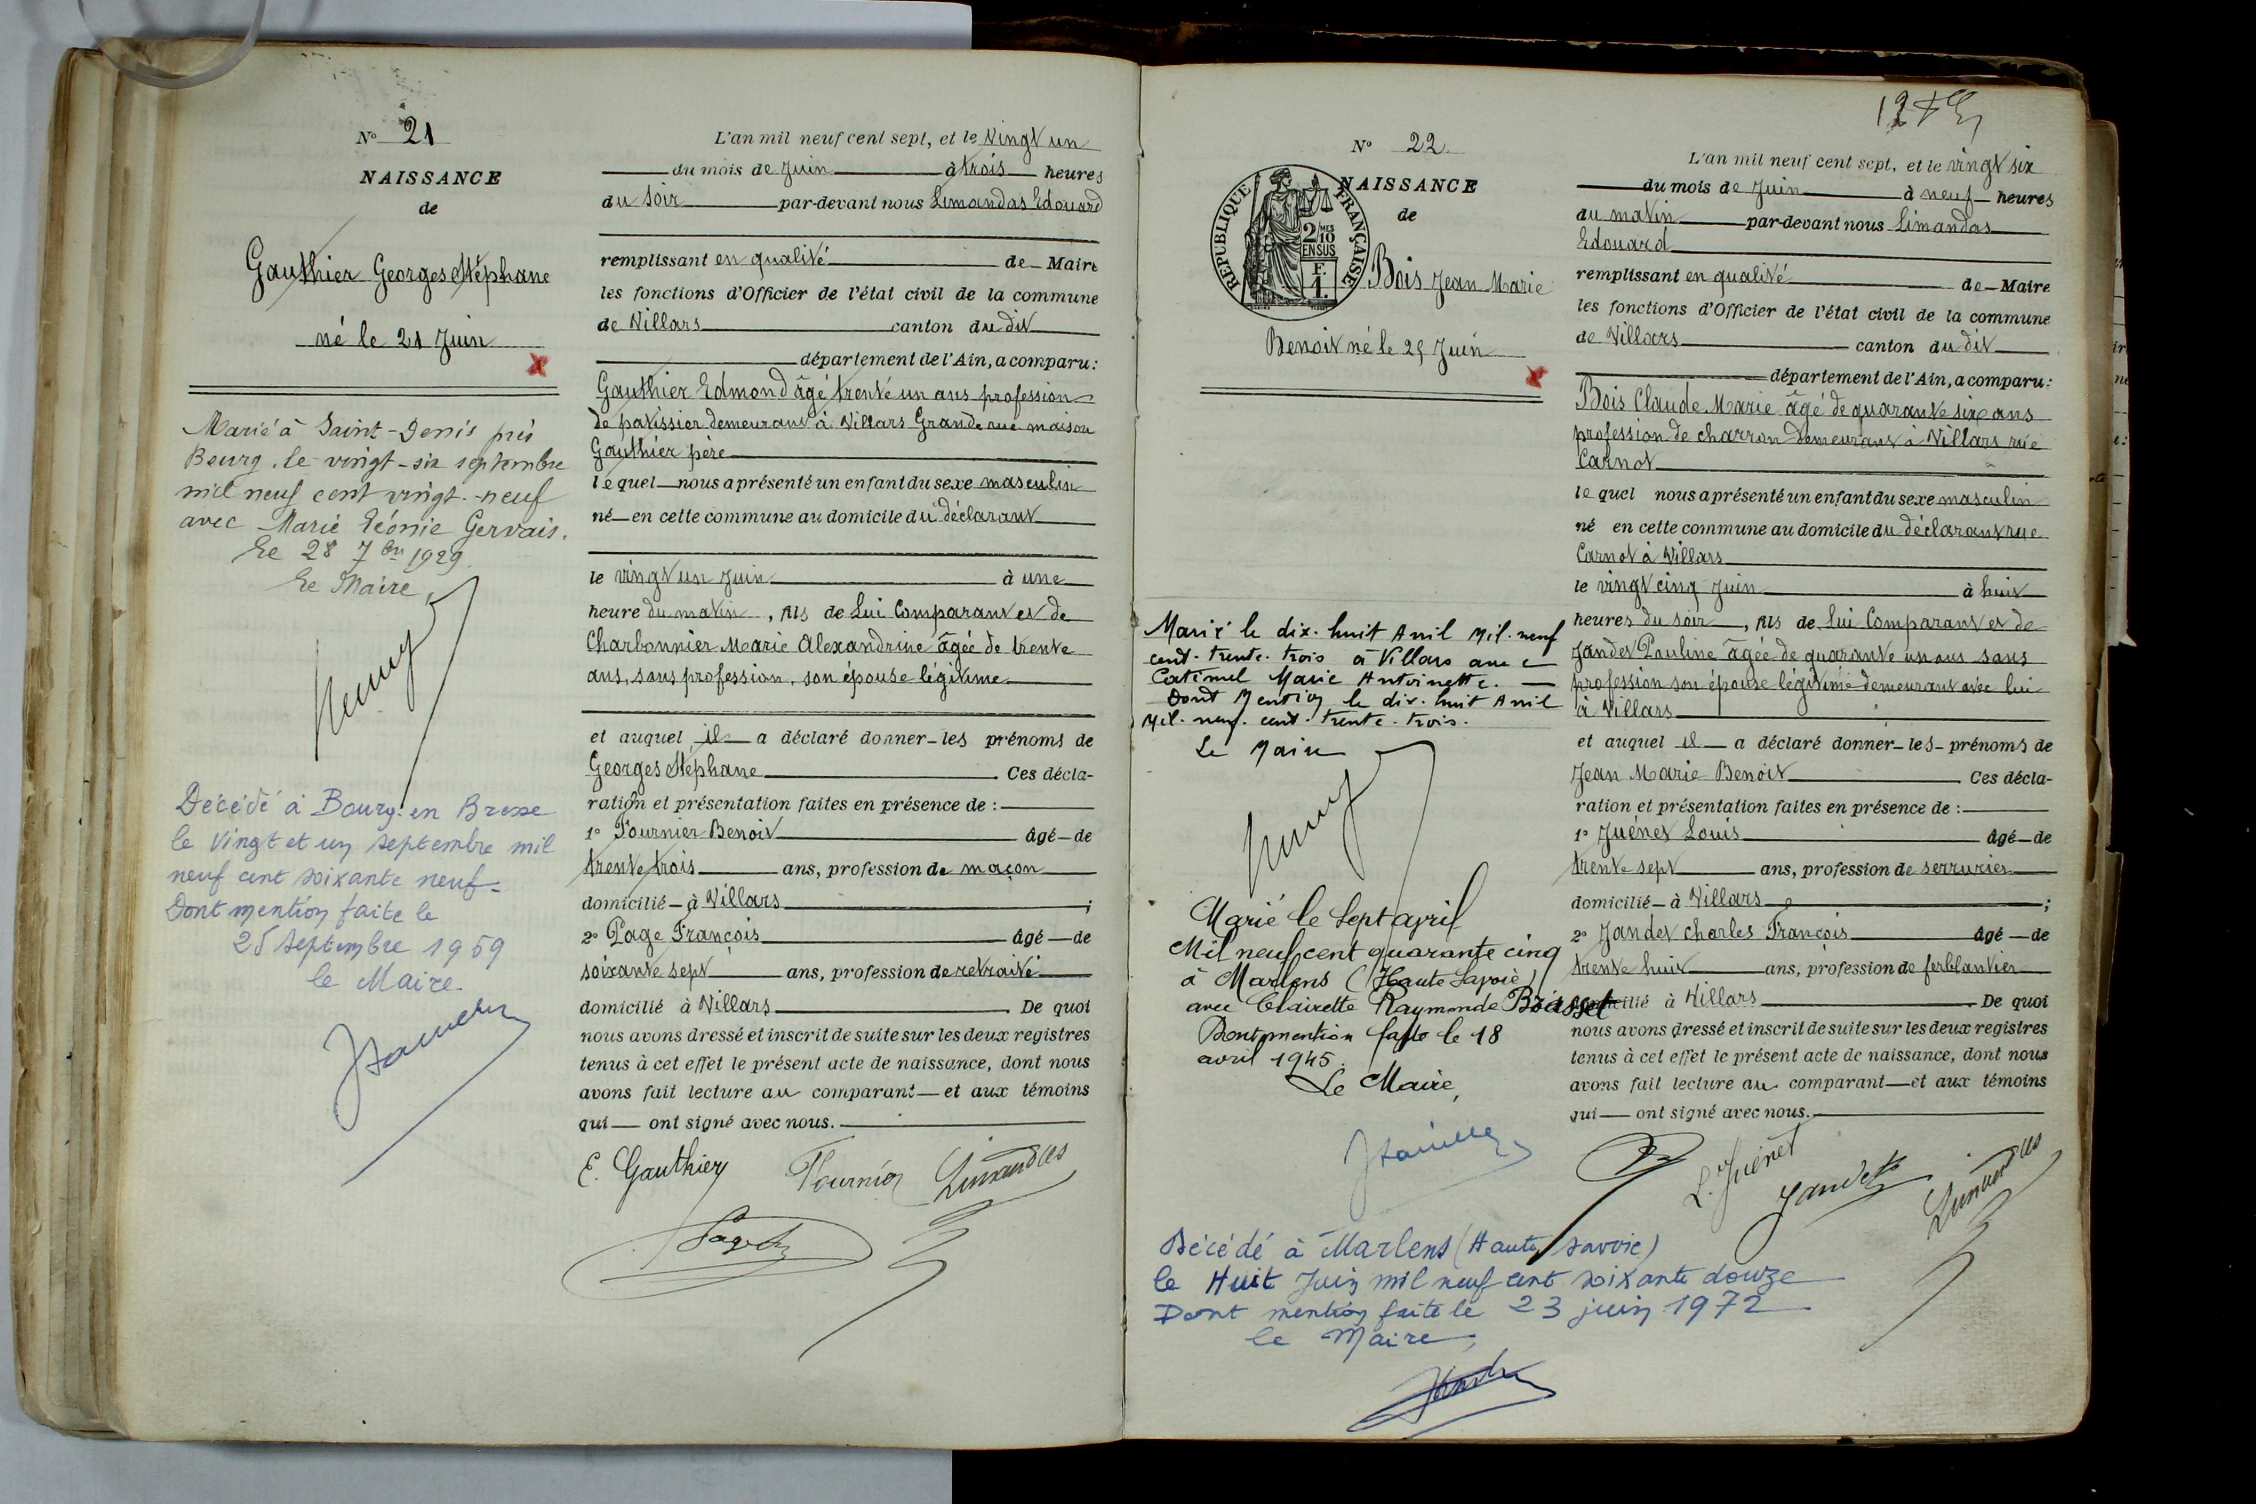 Nº 21
NAISSANCE
de
Gauthier Georges Stéphane
né le 21 Juin
Marié à Saint-Denis près
Bourg, le vingt-six septembre
mil neuf cent vingt-neuf
avec Marie Léonie Gervais.
Le 28 7bre 1929.
Le Maire,
Décédé à Bourg-en Bresse
le Vingt et un septembre mil
neuf cent soixante neuf-
Dont mention faite le
25 septembre 1969
le Maire.
L'an mil neuf cent sept, et le vingt un
du mois de Juin à trois heures
du soir par-devant nous Limandas Edouard
remplissant en qualité de Maire
les fonctions d'Officier de l'état civil de la commune
de Villars canton du dit
département de l'Ain, a comparu:
Gauthier Edmond âgé trente un ans profession
de patissier demeurant à Villars Grande rue maison
Gauthier père
lequel nous a présenté un enfant du sexe masculin
né en cette commune au domicile du déclarant
le vingt un Juin à une
heure du matin, fils de Lui Comparant et de
Charbonnier Marie Alexandrine âgée de trente
ans, sans profession, son épouse légitime
et auquel il a déclaré donner les prénoms de
Georges Stéphane Ces décla-
ration et présentation faites en présence de :
1º Fournier Benoit âgé de
trente trois ans, profession de maçon
domicilié à Villars ;
2º Page François âgé de
soixante sept ans, profession de retraité
domicilié à Villars De quoi
nous avons dressé et inscrit de suite sur les deux registres
tenus à cet effet le présent acte de naissance, dont nous
avons fait lecture au comparant et aux témoins
qui ont signé avec nous.
E. Gauthier Fournier Limandas
Page
Nº 22
REPUBLIQUE FRANÇAISE
2/10 MES
EN SUS
F.
1.
NAISSANCE
de
Bois Jean Marie
Benoit né le 25 Juin
Marié le dix-huit Avril Mil-neuf
cent-trente-trois à Villars avec
Catimel Marie Antoinette.
Dont Mention le dix-huit Avril
Mil-neuf-cent-trente-trois.
Le Maire
Marié le Sept avril
Mil neuf cent quarante cinq
à Marlens (Haute Savoie)
avec Clairette Raymonde Brasset
Dont mention faite le 18
avril 1945.
Le Maire,
Décédé à Marlens (Haute Savoie)
le Huit Juin mil neuf cent soixante douze
Dont mention faite le 23 juin 1972
le Maire,
L'an mil neuf cent sept, et le vingt six
du mois de Juin à neuf heures
du matin par-devant nous Limandas
Edouard
remplissant en qualité de Maire
les fonctions d'Officier de l'état civil de la commune
de Villars canton du dit
département de l'Ain, a comparu:
Bois Claude Marie âgé de quarante six ans
profession de charron demeurant à Villars rue
Carnot
lequel nous a présenté un enfant du sexe masculin
né en cette commune au domicile du déclarant rue
Carnot à Villars
le vingt cinq Juin à huit
heures du soir, fils de lui Comparant et de
Jandet Pauline âgée de quarante un ans sans
profession son épouse légitime demeurant avec lui
à Villars
et auquel il a déclaré donner les prénoms de
Jean Marie Benoit Ces décla-
ration et présentation faites en présence de :
1º Juénet Louis âgé de
trente sept ans, profession de serrurier
domicilié à Villars ;
2º Jandet Charles François âgé de
trente huit ans, profession de ferblantier
domicilié à Villars De quoi
nous avons dressé et inscrit de suite sur les deux registres
tenus à cet effet le présent acte de naissance, dont nous
avons fait lecture au comparant et aux témoins
qui ont signé avec nous.
L. Juénet Jandet Limandas